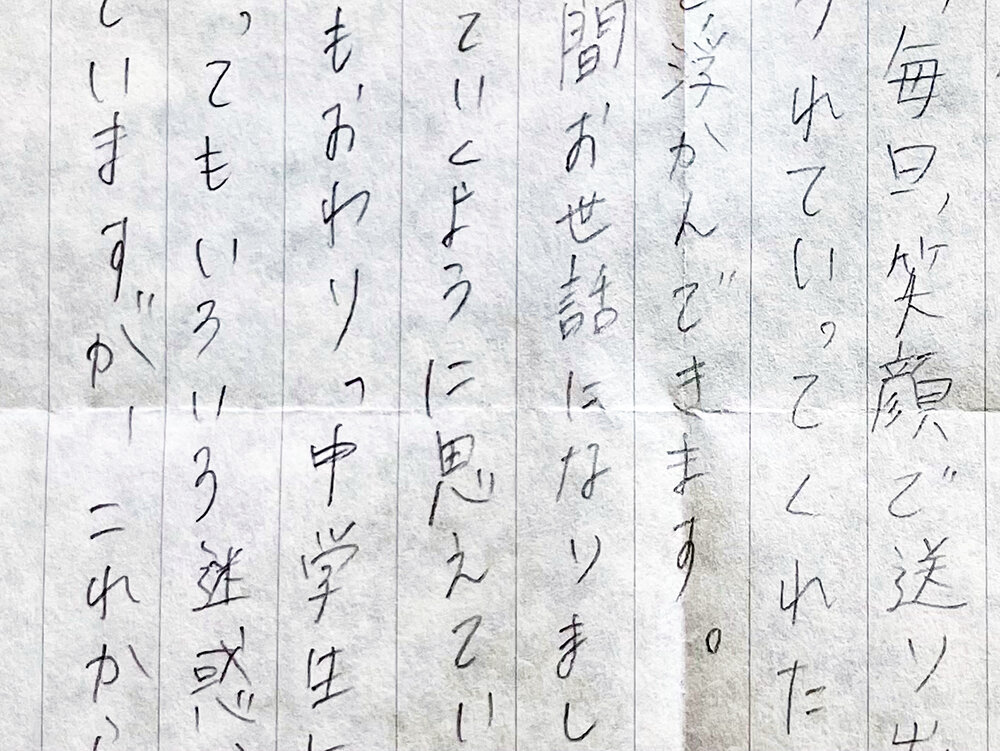 毎日、笑顔で送り出
れていってくれた
浮かんできます。
間お世話になりまし
ていくように思えてい
も、おわり、中学生に
ってもいろいろ迷惑
ていますが、これから